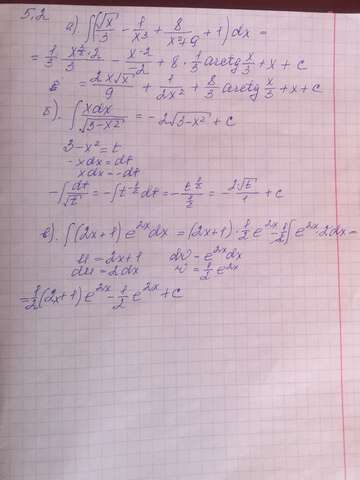 5,2
а). ∫(√x/3 − 1/x³ + 8/(x²+9) + 1) dx =
= 1/3 · x^(3/2)·2/3 − x⁻²/−2 + 8 · 1/3 arctg x/3 + x + c
= 2x√x/9 + 1/2x² + 8/3 arctg x/3 + x + c
б). ∫ xdx/√(3−x²) = −2√(3−x²) + c
3−x² = t
−xdx = dt
xdx = −dt
−∫ dt/√t = −∫ t^(−1/2) dt = − t^(1/2)/(1/2) = 2√t/1 + c
в). ∫ (2x+1) e^(2x) dx = (2x+1) · 1/2 e^(2x) − 1/2 ∫ e^(2x) · 2dx =
u = 2x+1 dv = e^(2x) dx
du = 2dx v = 1/2 e^(2x)
= 1/2 (2x+1) e^(2x) − 1/2 e^(2x) + c